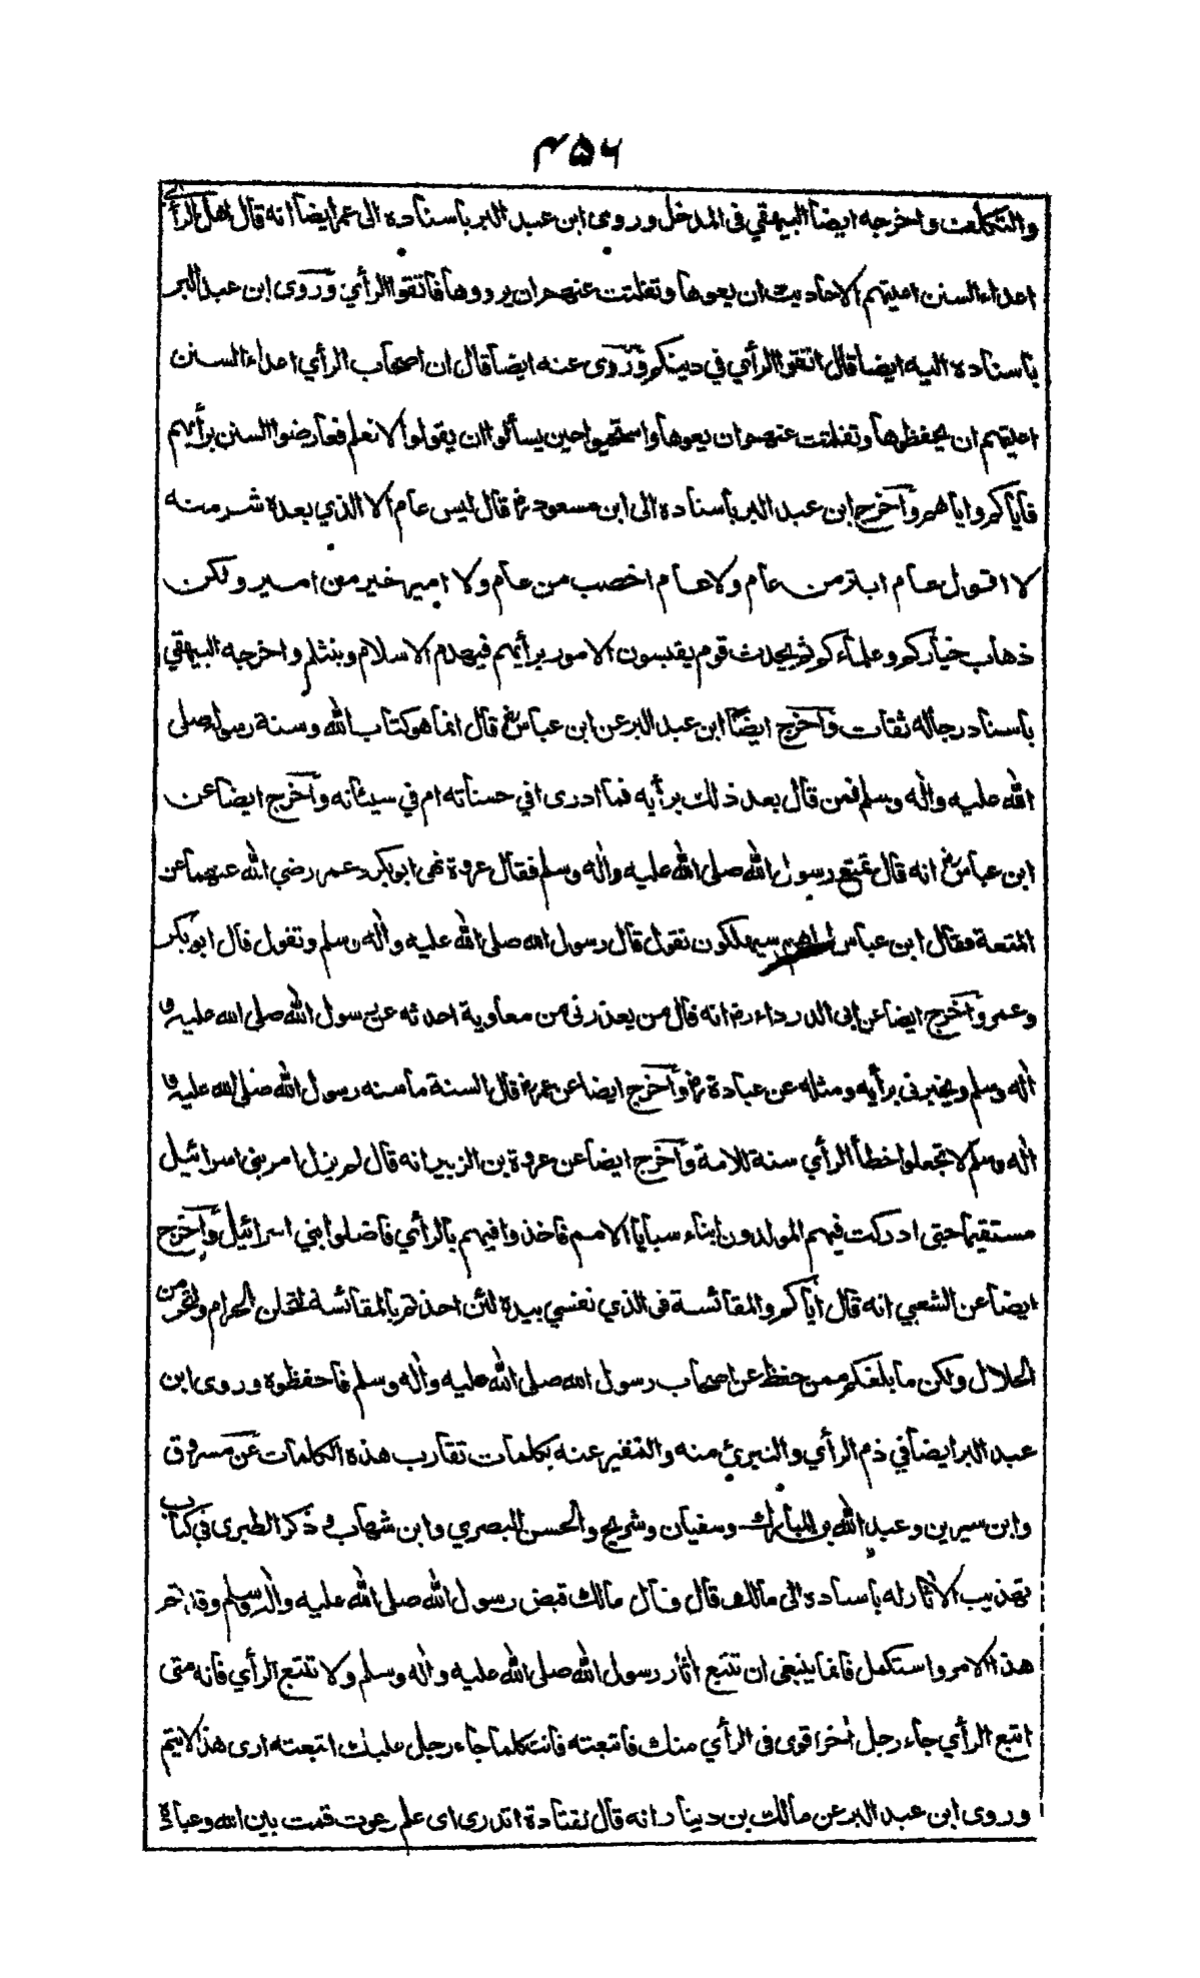 ۴۵۶
والتكلف واخرجه ايضا البيهقي فى المدخل وروى ابن عبد البر باسناده الى عمر ايضا انه قال اهل الرأي
اعداء السنن اعيتهم الاحاديث ان يعوها وتفلتت عنهم ان يرووها فاتقوا الرأي وروى ابن عبد البر
باسناده اليه ايضا قال اتقوا الرأي في دينكم وروى عنه ايضا قال ان اصحاب الرأي اعداء السنن
اعيتهم ان يحفظوها وتفلتت عنهم ان يعوها واستحيوا حين يسألوا ان يقولوا لا نعلم فعارضوا السنن برأيهم
فاياكم واياهم واخرج ابن عبد البر باسناده الى ابن مسعود رض قال ليس عام الا الذي بعده شر منه
لا اقول عام ابتر من عام ولا عام اخصب من عام ولا امير خير من امير ولكن
ذهاب خياركم وعلماءكم ثم يحدث قوم يقيسون الامور برأيهم فيهدم الاسلام وينثلم واخرجه البيهقي
باسناد رجاله ثقات واخرج ايضا ابن عبد البر عن ابن عباس رض قال انما هو كتاب الله وسنة رسوله صلى
الله عليه واله وسلم فمن قال بعد ذلك برأيه فما ادرى افي حسناته ام في سيئاته واخرج ايضا عن
ابن عباس رض انه قال تمتع رسول الله صلى الله عليه واله وسلم فقال عروة نهى ابو بكر وعمر رضي الله عنهما عن
المتعة فقال ابن عباس اراهم سيهلكون نقول قال رسول الله صلى الله عليه واله وسلم وتقول قال ابو بكر
وعمر واخرج ايضا عن ابى الدرداء رض انه قال من يعذرنى من معاوية احدثه عن رسول الله صلى الله عليه و
اله وسلم ويخبرنى برأيه ومثله عن عبادة رض واخرج ايضا عن عمر رض قال السنة ما سنه رسول الله صلى الله عليه و
اله وسلم لا تجعلوا خطأ الرأي سنة للامة واخرج ايضا عن عروة بن الزبير انه قال لم يزل امر بنى اسرائيل
مستقيما حتى ادركت فيهم المولدون ابناء سبايا الامم فاخذوا فيهم بالرأي فاضلوا بني اسرائيل واخرج
ايضا عن الشعبي انه قال اياكم والمقائسة فى الذي نفسي بيده لئن اخذتم بالمقائسة لتحلن الحرام ولتحرمن
الحلال ولكن ما بلغكم ممن حفظ عن اصحاب رسول الله صلى الله عليه واله وسلم فاحفظوه وروى ابن
عبد البر ايضا في ذم الرأي والتبرئ منه والتنفير عنه بكلمات تقارب هذه الكلمات عن مسروق
وابن سيرين وعبد الله بن المبارك وسفيان وشريح والحسن البصري وابن شهاب وذكر الطبرى فى كتاب
تهذيب الاثار له باسناده الى مالك قال قال مالك قبض رسول الله صلى الله عليه واله وسلم وقد تم
هذا الامر واستكمل فانما ينبغى ان تتبع اثار رسول الله صلى الله عليه واله وسلم ولا تتبع الرأي فانه متى
اتبع الرأي جاء رجل اخر اقوى فى الرأي منك فاتبعته فانت كلما جاء رجل عليك اتبعته ارى هذا لا يتم
وروى ابن عبد البر عن مالك بن دينار انه قال لقتادة اتدرى اى علم رعوت قمت بين الله وعباده